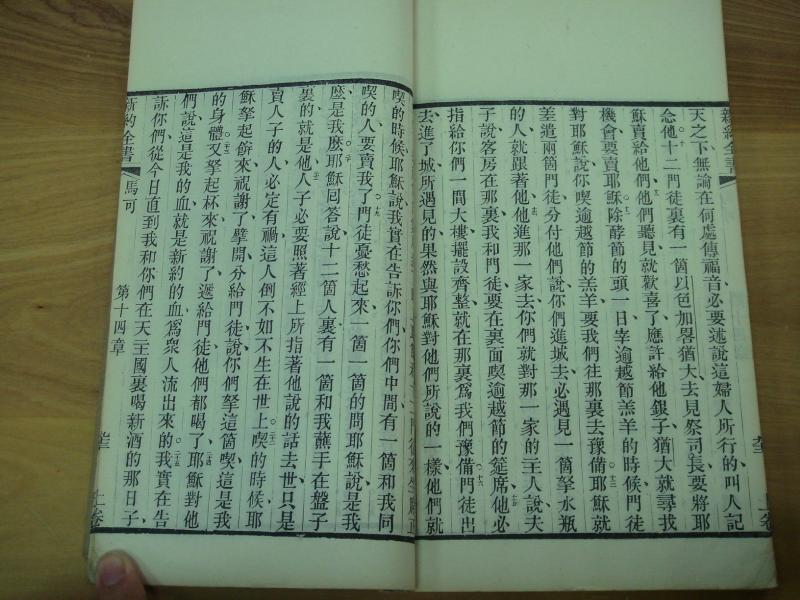 新約全書
天之下無論在何處傳福音必要述說這婦人所行的叫人記
念他十二門徒裏有一箇以色加畧猶大去見祭司長要將耶
穌賣給他們他們聽見就歡喜了應許給他銀子猶大就尋找
機會要賣耶穌除酵節的頭一日宰逾越節羔羊的時候門徒
對耶穌說你喫逾越節的羔羊要我們往那裏去豫備耶穌就
差遣兩箇門徒分付他們說你們進城去必遇見一箇拏水瓶
的人就跟著他他進那一家去你們就對那一家的主人說夫
子說客房在那裏我和門徒要在裏面喫逾越節的筵席他必
指給你們一間大樓擺設齊整就在那裏爲我們豫備門徒出
去進了城所遇見的果然與耶穌對他們所說的一樣他們就
上卷
喫的時候耶穌說我實在告訴你們你們中間有一箇和我同
喫的人要賣我了門徒憂愁起來一箇一箇的問耶穌說是我
麽是我麽耶穌回答說十二箇人裏有一箇和我蘸手在盤子
裏的就是他人子必要照著經上所指著他說的話去世只是
賣人子的人必定有禍這人倒不如不生在世上喫的時候耶
穌拏起餅來祝謝了擘開分給門徒說你們拏這箇喫這是我
的身體又拏起杯來祝謝了遞給門徒他們都喝了耶穌對他
們說這是我的血就是新約的血爲衆人流出來的我實在告
訴你們從今日直到我和你們在天主國裏喝新酒的那日子
新約全書
馬可
第十四章
上卷